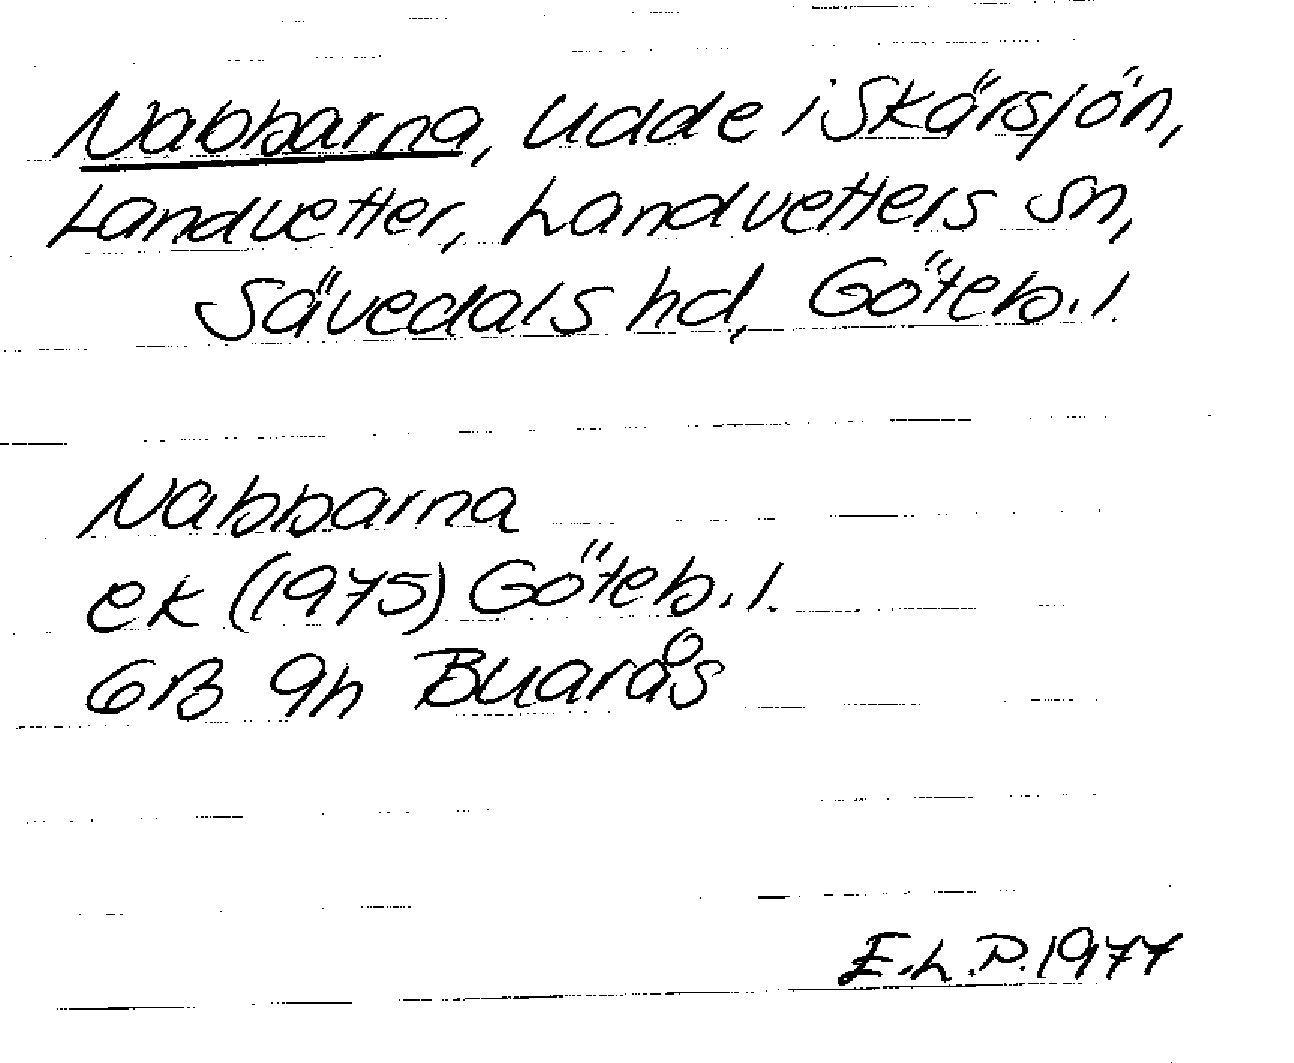 Nabbarna, udde i Skärsjön,
Landvetter, Landvetters sn,
Sävedals hd, Göteb.l.
Nabbarna
ek (1975) Göteb.l.
6B 9h Buarås
E.L.P. 1977